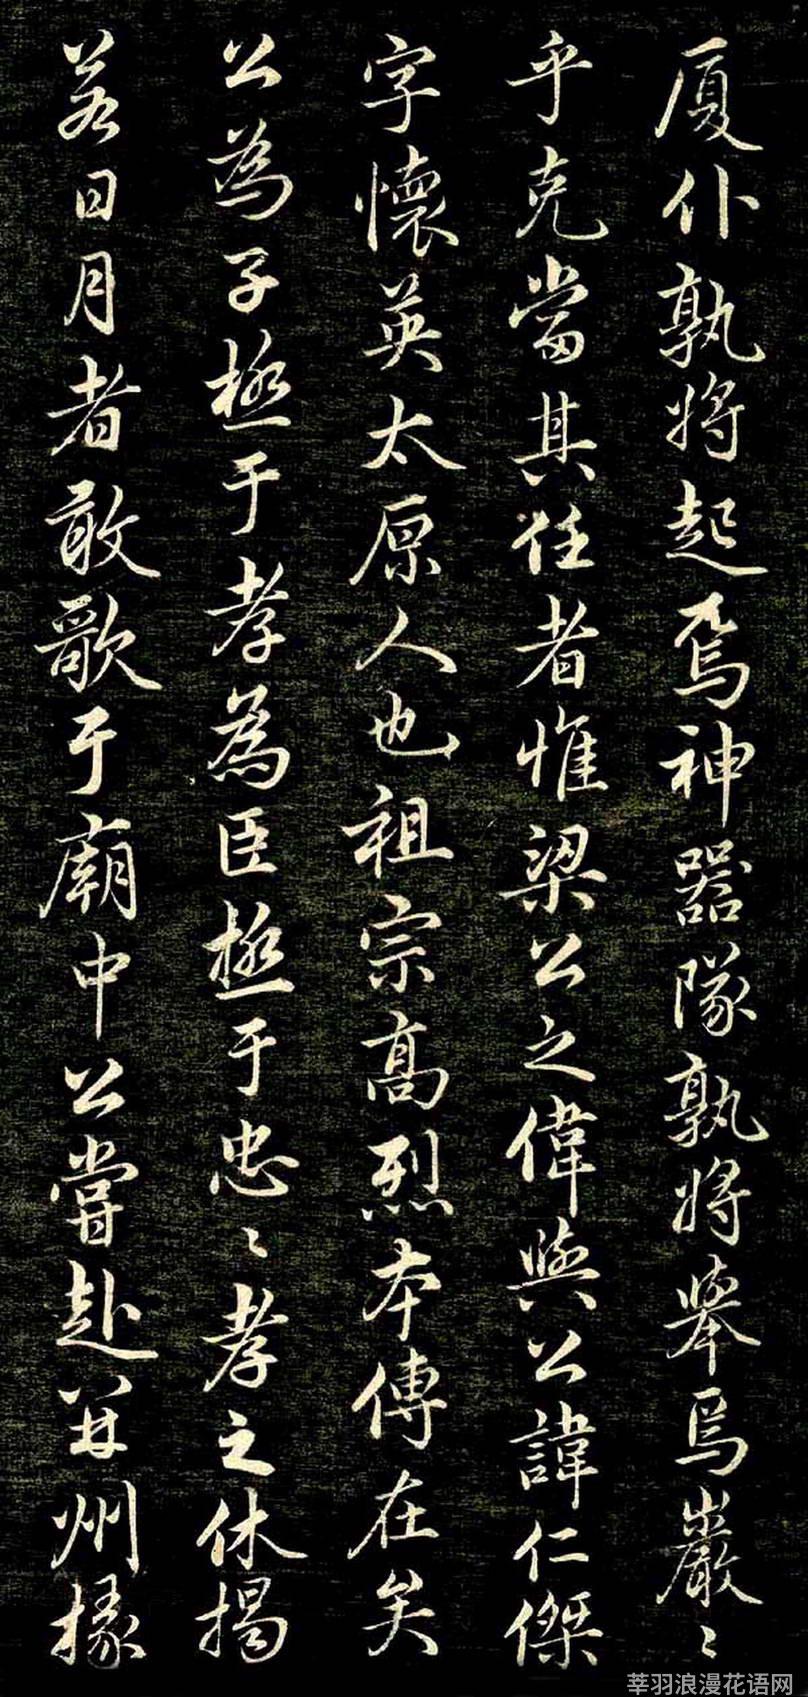 厦仆孰將起焉神器隊孰將舉焉巖〻
乎克當其任者惟梁公之偉與公諱仁傑
字懷英太原人也祖宗高烈本傳在矣
公為子極于孝為臣極于忠〻孝之休揭
若日月者敢歌于廟中公嘗赴并州掾
莘羽浪漫花语网